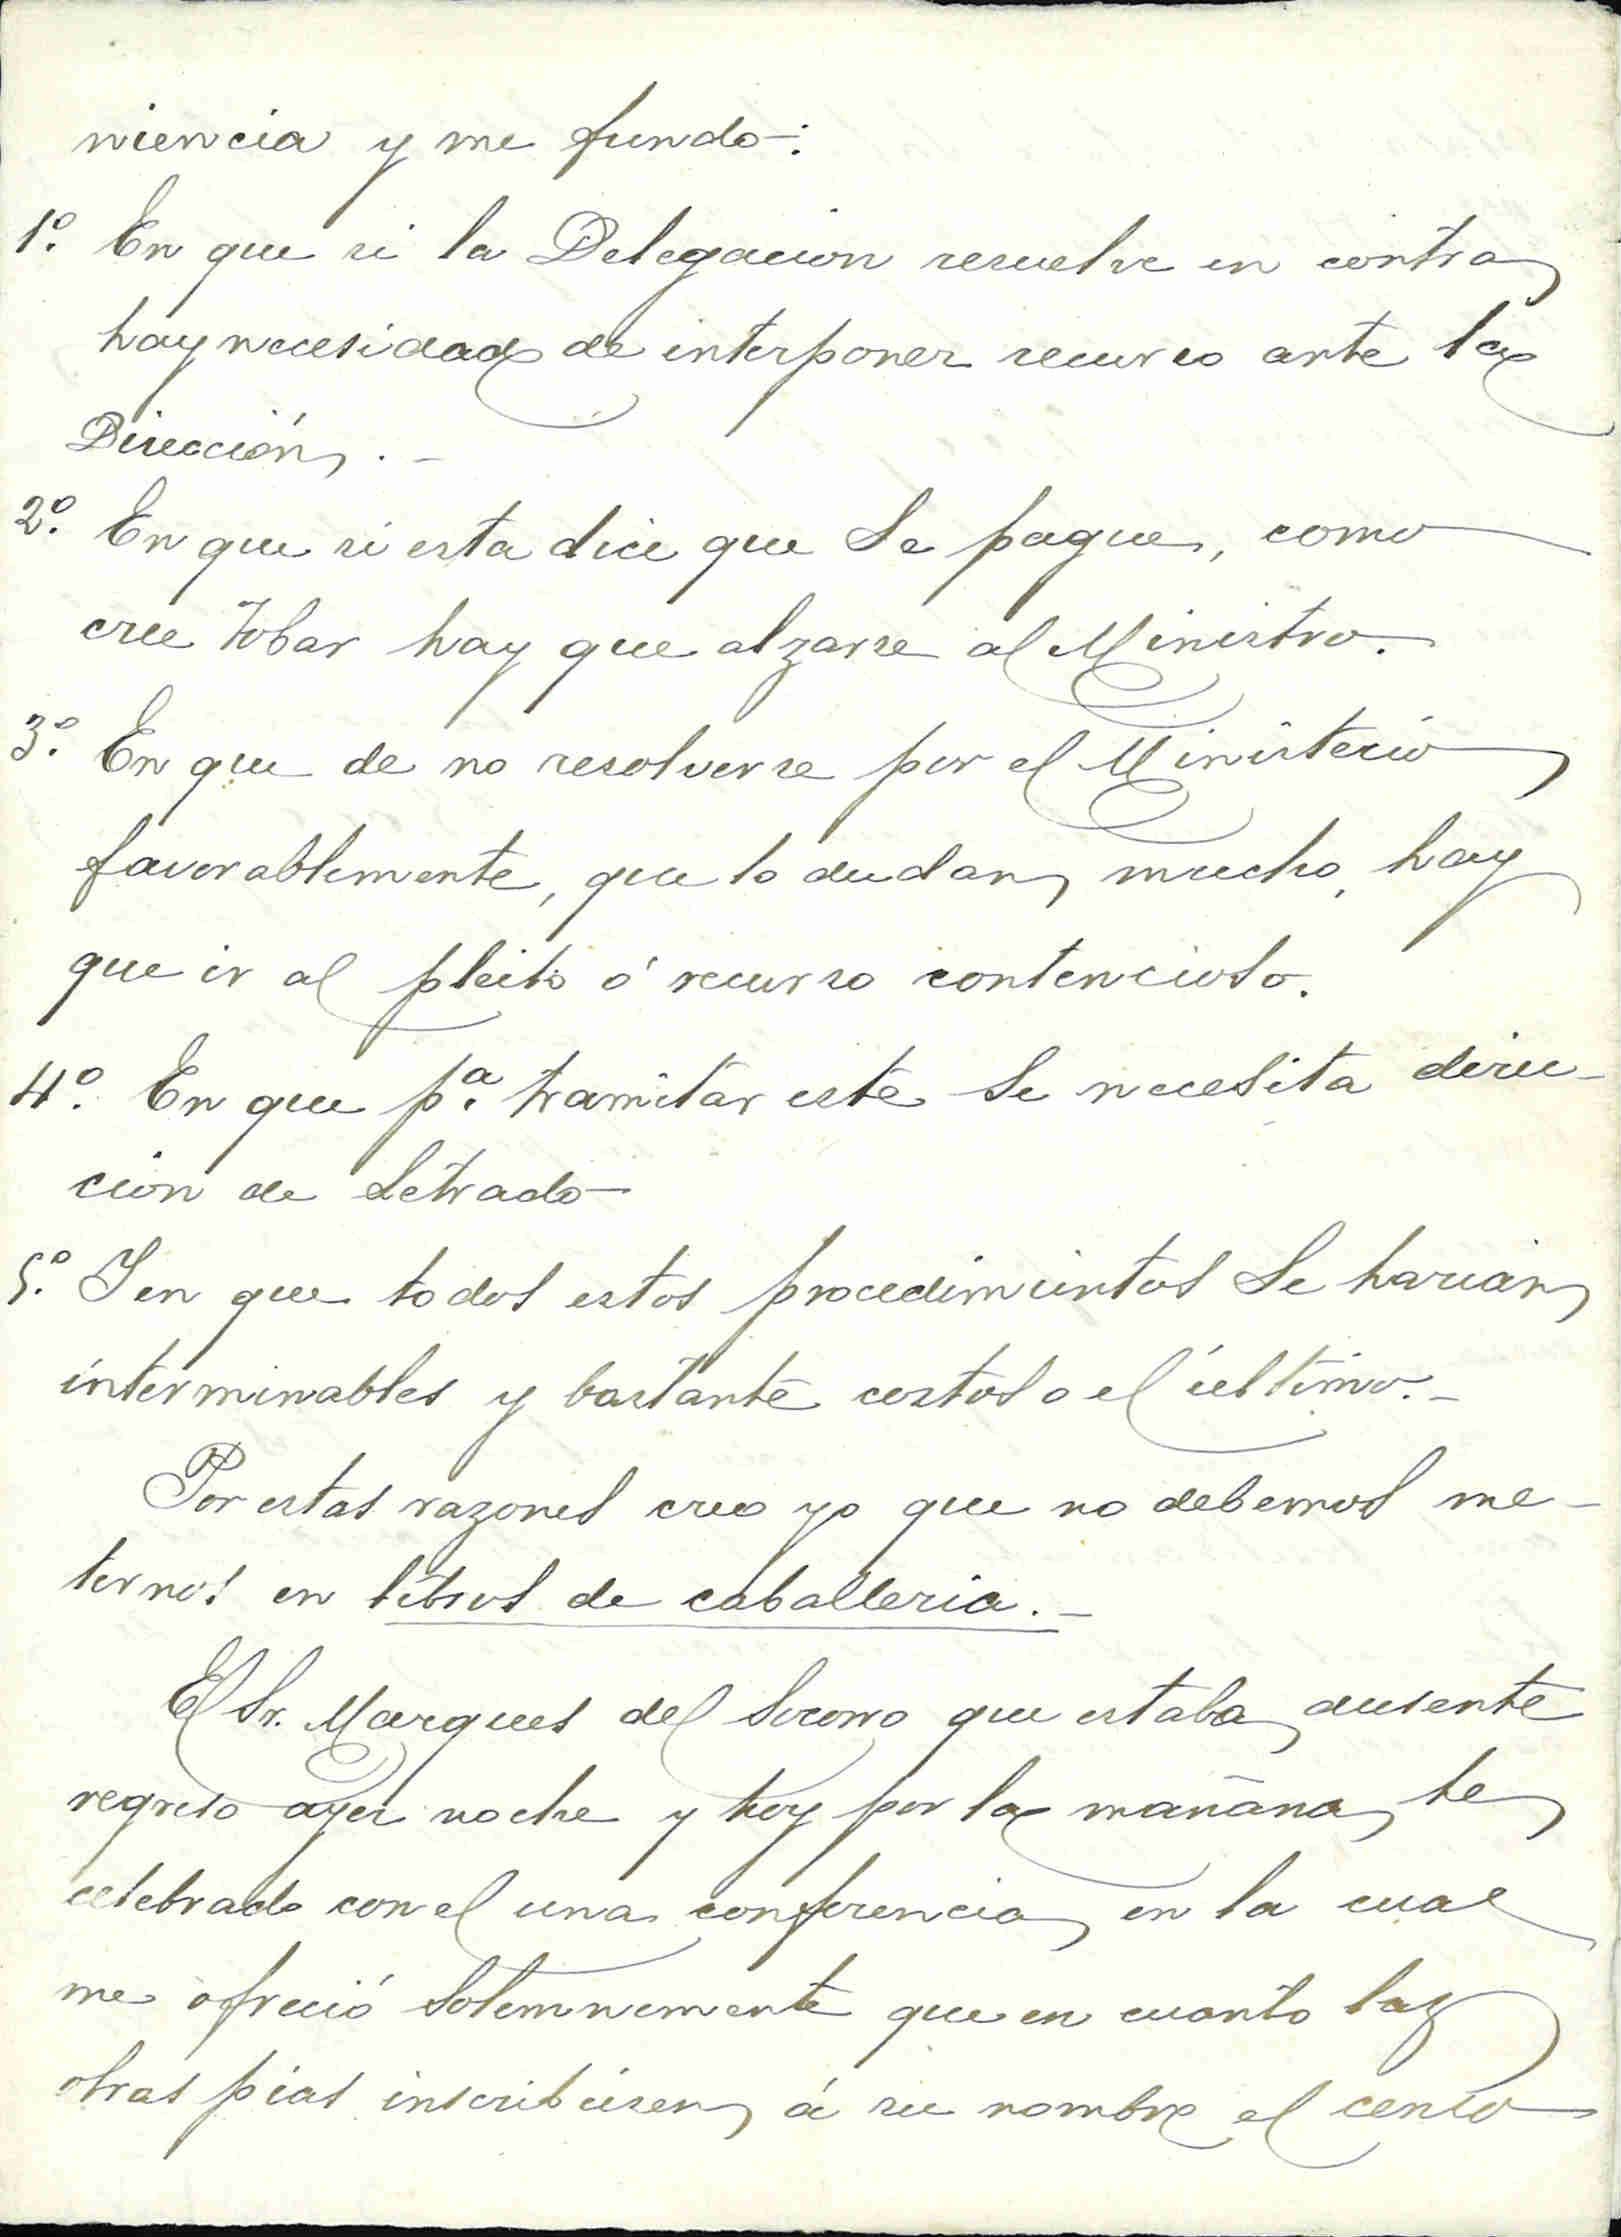 niencia y me fundo:
1º. En que si la Delegacion resuelve en contra
hay necesidad de interponer recurso ante la
Dirección. -
2º. En que si esta dice que se pague, como
cree Tobar hay que alzarse al Ministro.
3º. En que de no resolverse por el Ministerio
favorablemente, que lo dudan mucho, hay
que ir al pleito ó recurso contencioso.
4º. En que pª. tramitar este se necesita direc-
cion de Letrado
5º. Y en que todos estos procedimientos se harian
interminables y bastante costoso el último. -
Por estas razones creo yo que no debemos me-
ternos en libros de caballeria. -
El Sr. Marques del Socorro que estaba ausente
regreso ayer noche y hoy por la mañana he
celebrado con el una conferencia en la cual
me ofreció solemnemente que en cuanto las
obras pias inscribiesen á su nombre el censo